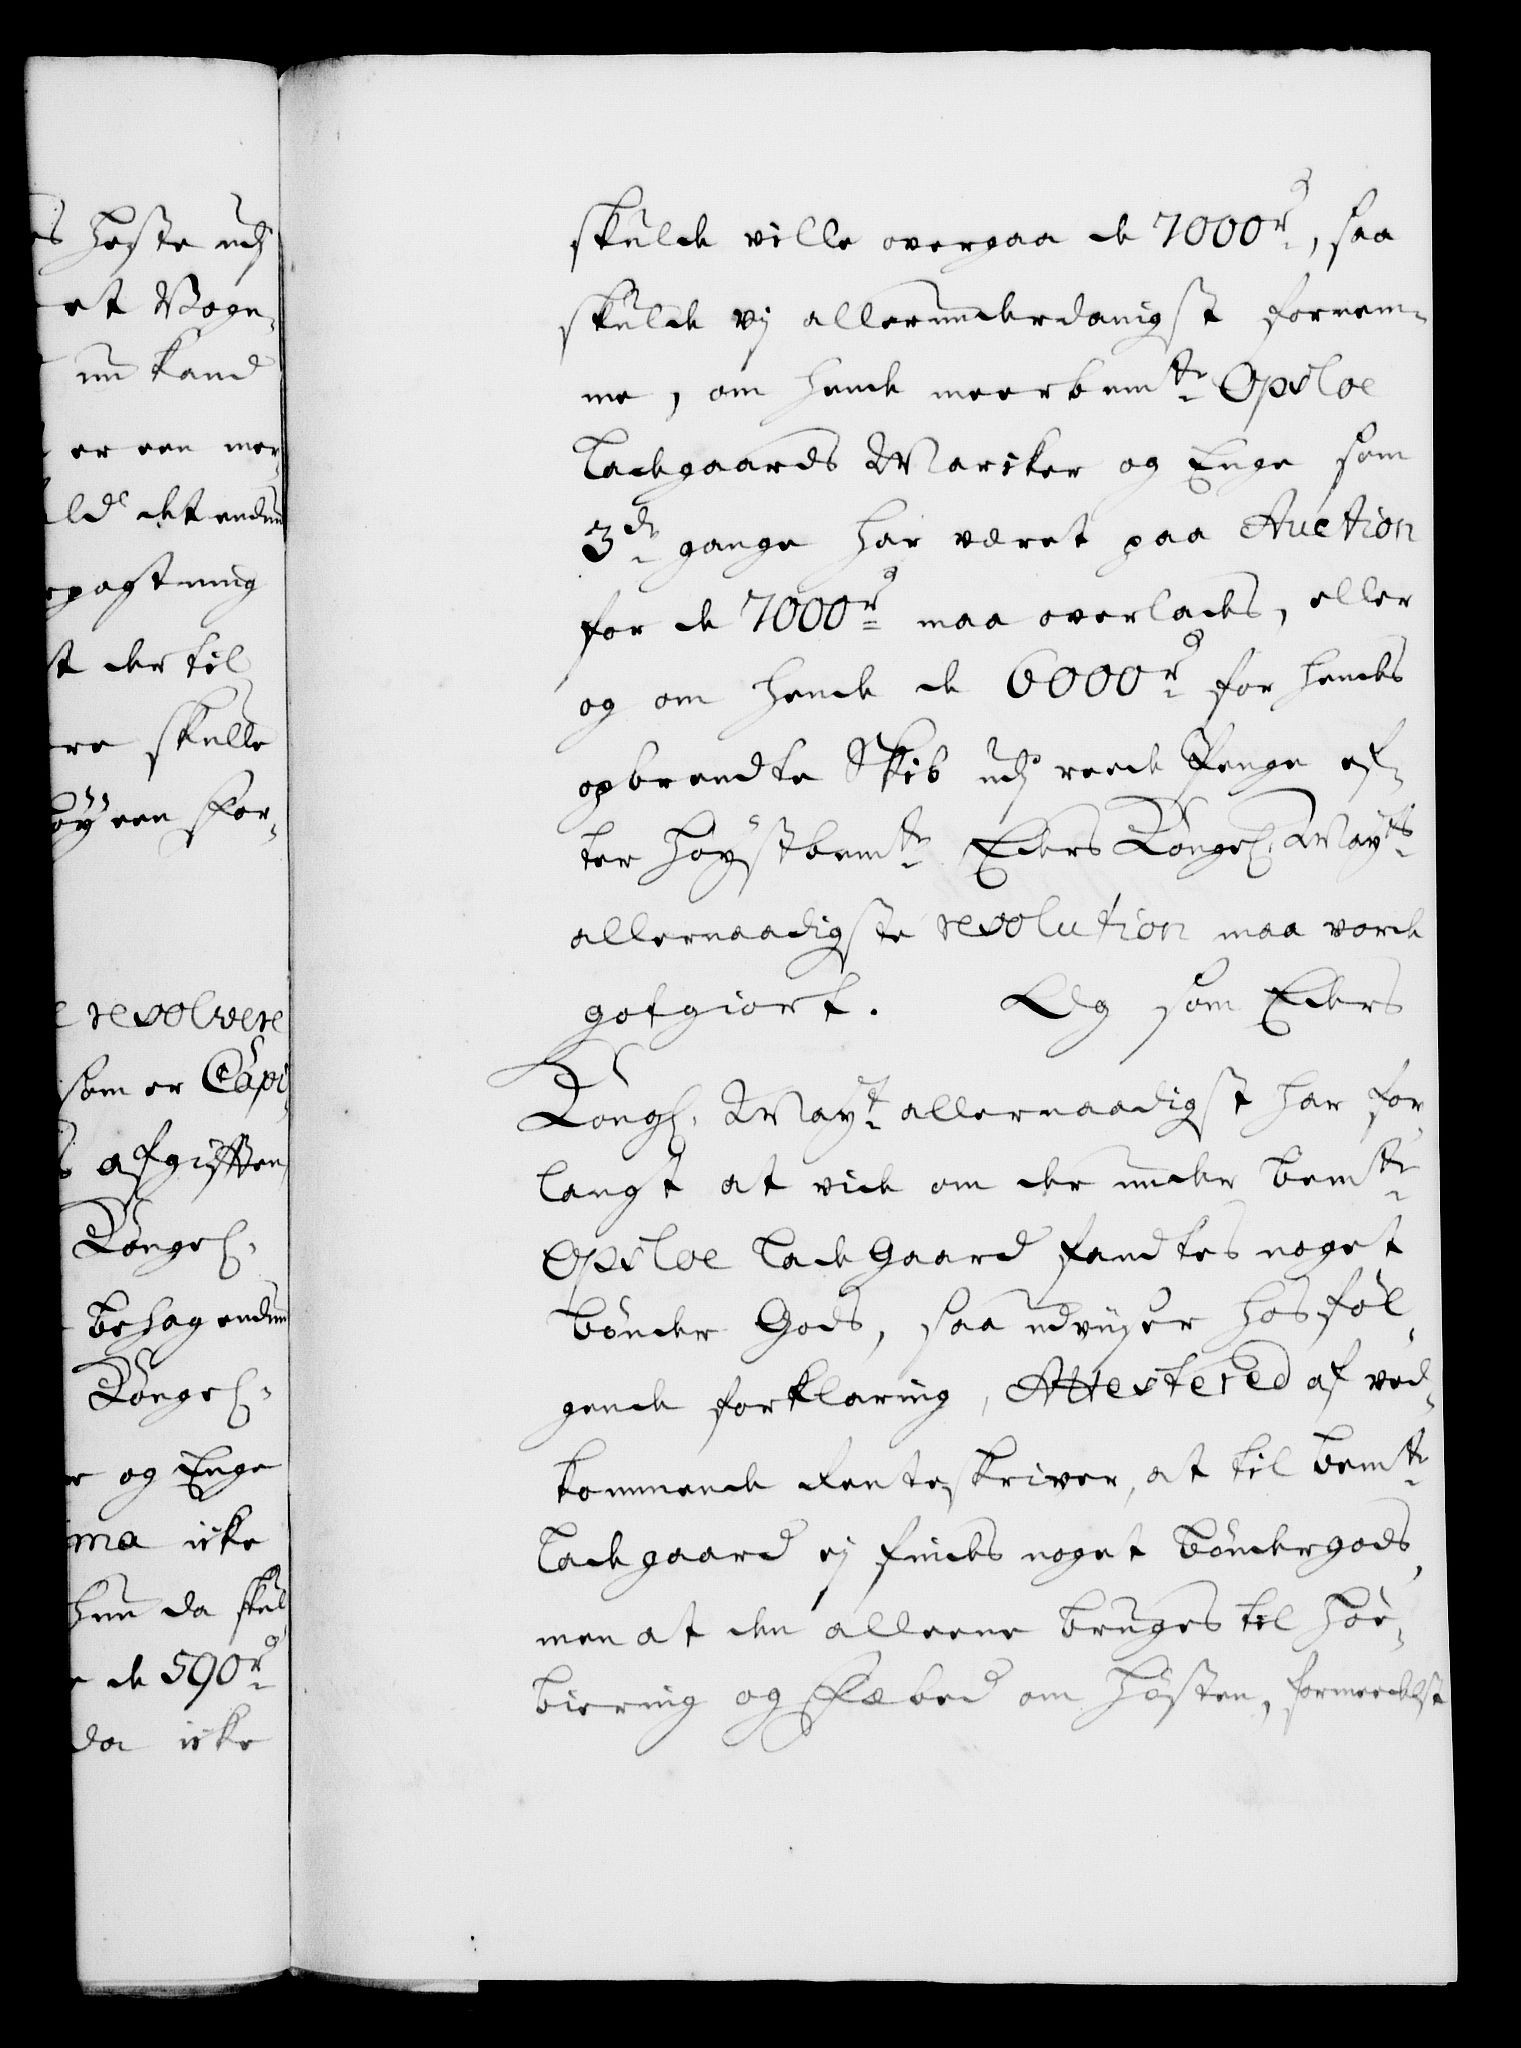 s Heste udj
et Vogn-
nu kand
er een mer-
det endnu
pagtning
st der til
re skulle
een For-
resolvere
som er Capi-
s afgifften
Kongel.
behag endnu
Kongel.
r og Enge
ma icke
hun da skul-
de 590 rd
da icke
skulde ville overgaa de 7000 rd, saa
skulde vj allerunderdanigst fornem-
me, om hende meerbemte Opsloe
Ladegaards Marcker og Enge som
3de gange har været paa Auction
for de 7000 rd maa overlades, eller
og om hende de 6000 rd for hendes
opbrendte Skib udj reede Penge ef-
ter høystbemte Eders Kongel. Mayts
allernaadigste resolution maa vorde
gotgiort. Og som Eders
Kongl. Mayt allernaadigst har for-
langt at vide om der under bemte
Opsloe Lade Gaard fandtes noget
bønder Gods, saa udvijser hosføl-
gende forklaring, Attestered af ved-
kommende Renteskriver, at til bemte
Ladegaard ej findes noget bøndergods,
men at den alleene bruges til Høe-
biering og Fæbed om Høsten, formeedelst